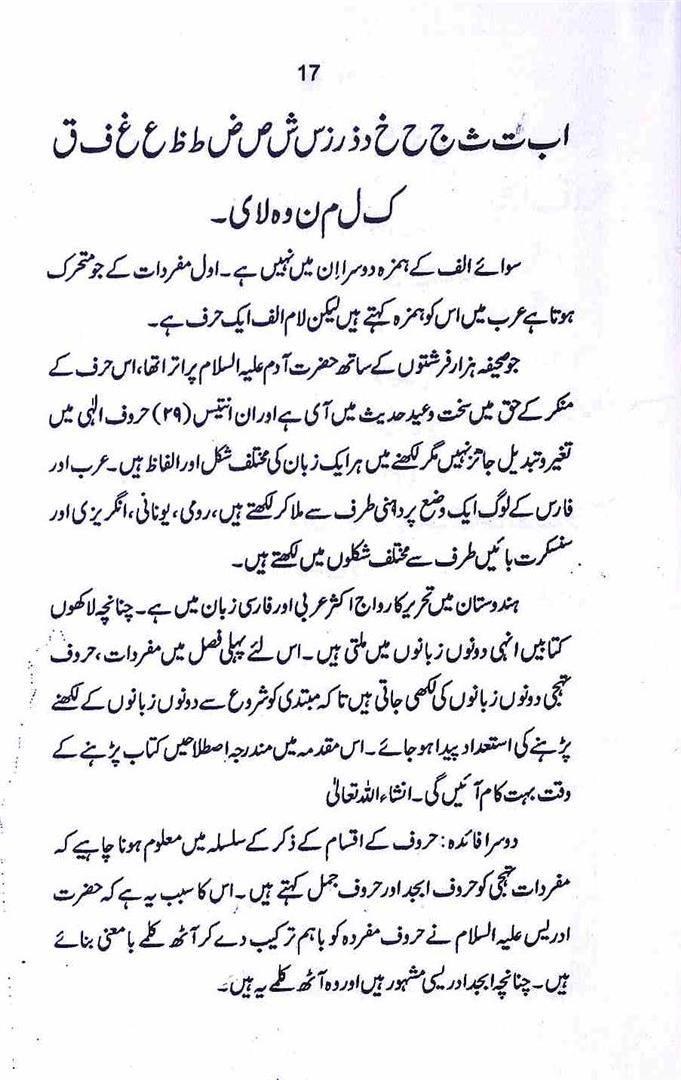 17
ا ب ت ث ج ح خ د ذ ر ز س ش ص ض ط ظ ع غ ف ق
ک ل م ن و ہ لا ی ۔
سوائے الف کے ہمزہ دوسرا اِن میں نہیں ہے۔ اول مفردات کے جو متحرک
ہوتا ہے عرب میں اس کو ہمزہ کہتے ہیں لیکن لام الف ایک حرف ہے۔
جو صحیفہ ہزار فرشتوں کے ساتھ حضرت آدم علیہ السلام پر اترا تھا، اس حرف کے
منکر کے حق میں سخت وعید حدیث میں آی ہے اور ان انتیس (۲۹) حروف الٰہی میں
تغیر و تبدیل جائز نہیں مگر لکھنے میں ہر ایک زبان کی مختلف شکل اور الفاظ ہیں۔ عرب اور
فارس کے لوگ ایک وضع پر داہنی طرف سے ملا کر لکھتے ہیں، رومی، یونانی، انگریزی اور
سنسکرت بائیں طرف سے مختلف شکلوں میں لکھتے ہیں۔
ہندوستان میں تحریر کا رواج اکثر عربی اور فارسی زبان میں ہے۔ چنانچہ لاکھوں
کتابیں انہی دونوں زبانوں میں ملتی ہیں۔ اس لئے پہلی فصل میں مفردات، حروف
تہجی دونوں زبانوں کی لکھی جاتی ہیں تا کہ مبتدی کو شروع سے دونوں زبانوں کے لکھنے
پڑہنے کی استعداد پیدا ہو جائے۔ اس مقدمہ میں مندرجہ اصطلاحیں کتاب پڑہنے کے
وقت بہت کام آئیں گی۔ انشاء اللہ تعالیٰ
دوسرا فائدہ: حروف کے اقسام کے ذکر کے سلسلہ میں معلوم ہونا چاہیے کہ
مفردات تہجی کو حروف ابجد اور حروف جمل کہتے ہیں۔ اس کا سبب یہ ہے کہ حضرت
ادریس علیہ السلام نے حروف مفردہ کو باہم ترکیب دے کر آٹھ کلمے بامعنی بنائے
ہیں۔ چنانچہ ابجد ادریسی مشہور ہیں اور وہ آٹھ کلمے یہ ہیں۔